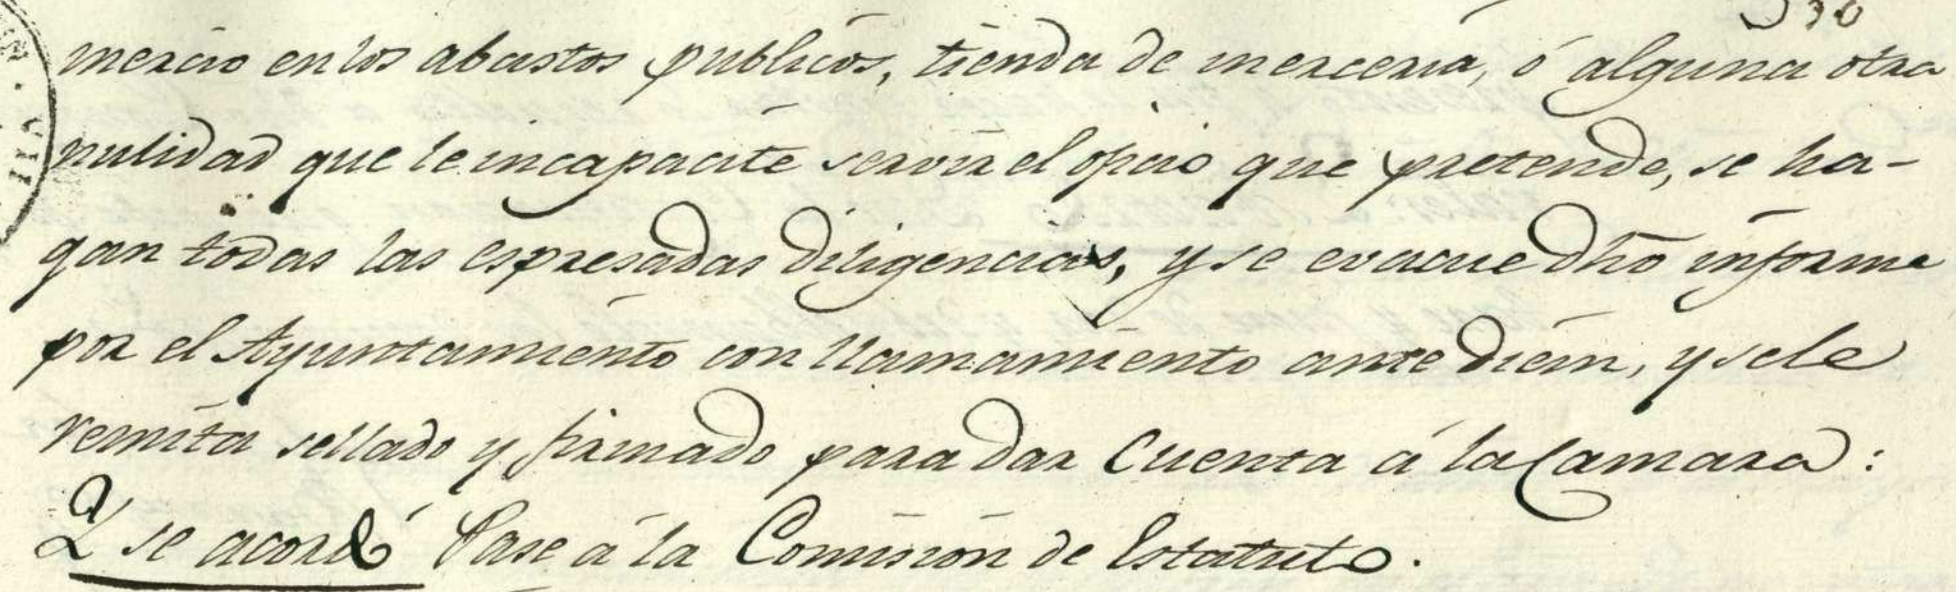 mercio en los abastos publicos, tienda de merceria, ó alguna otra
nulidad que le incapacite servir el oficio que pretende, se ha-
gan todas las espresadas diligencias, y se evacue dho informe
por el Ayuntamiento con llamamiento ante diem, y se le
remita sellado y firmado para dar Cuenta á la Camara:
Y se acordó Pase á la Comision de Estatuto.